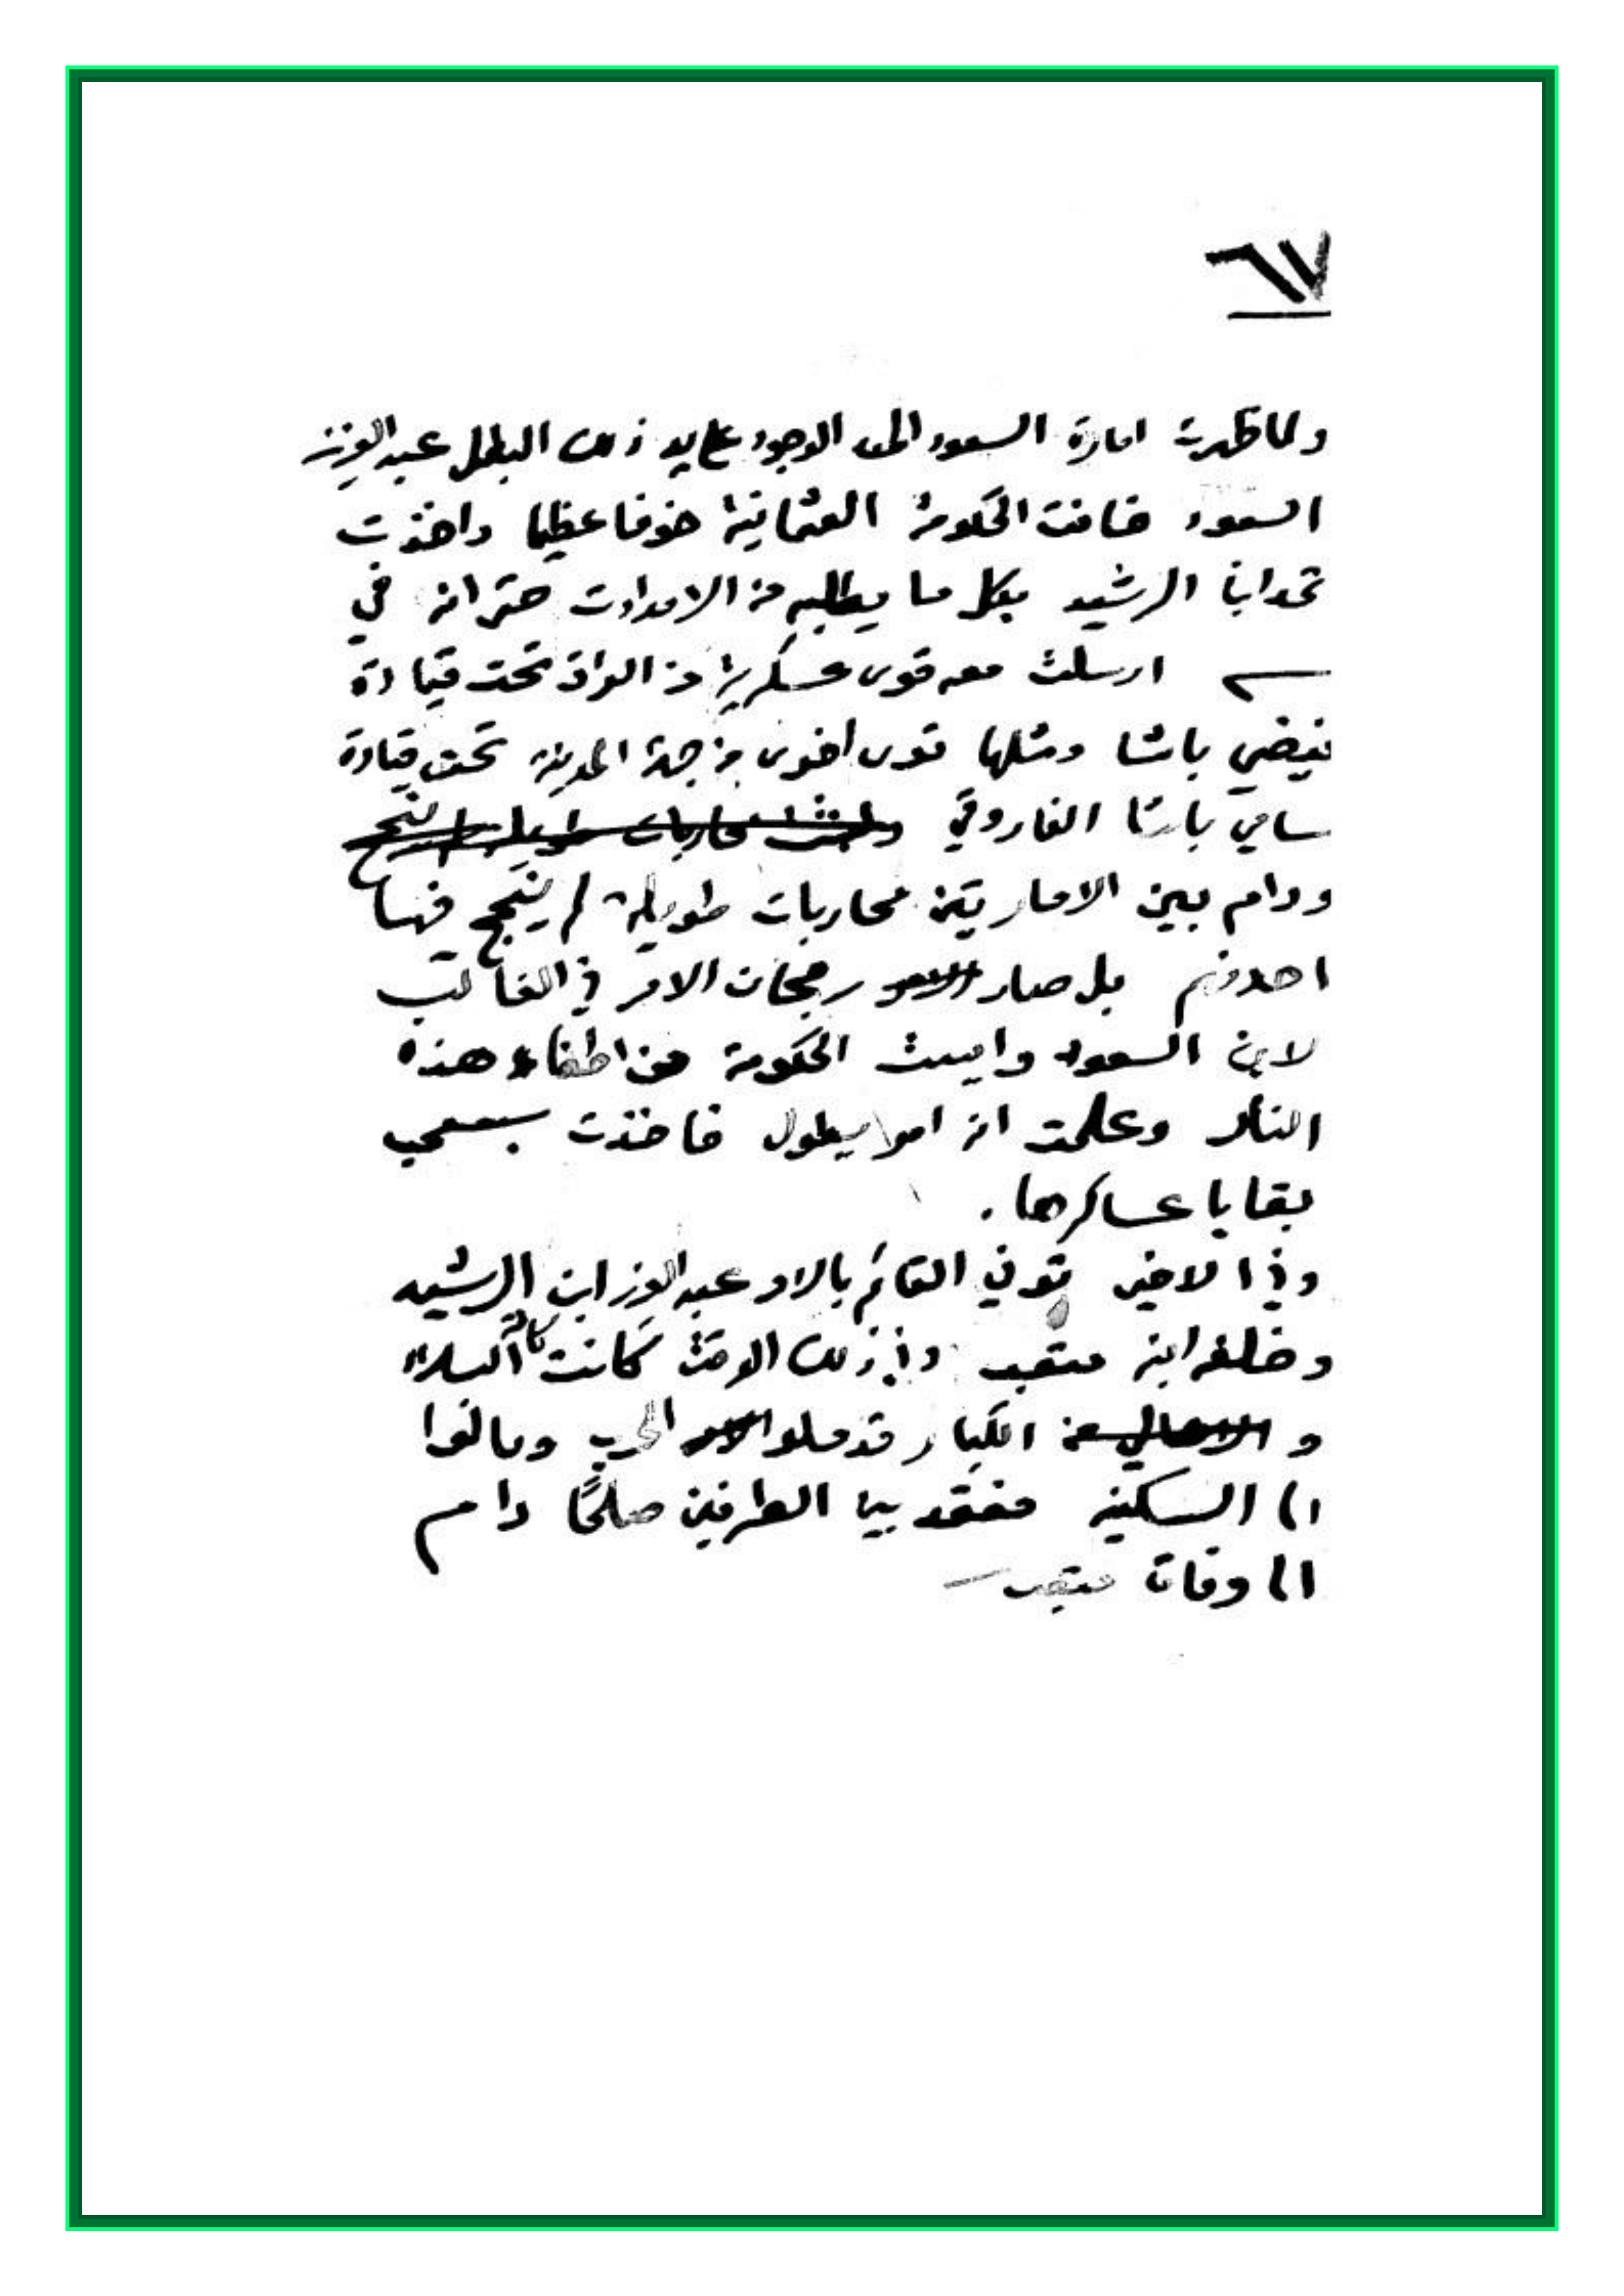 ٦٧
ولما ظهرت امارة السعود الى الوجود على يد ذلك البطل عبدالعزيز
السعود خافت الحكومة العثمانية خوفا عظيما واخذت
تمد ابن الرشيد بكل ما يطلبه من الامدادت حتى انه في
ارسلت معه قوى عسكرية من العراق تحت قيادة
فيضي باشا ومثلها قوى اخرى من جهة المدينة تحت قيادة
سامي باشا الفاروقي
ودام بين الامارتين محاربات طويلة لم ينجح فيها
احدهم بل صار رجحان الامر في الغالب
لابن السعود وايست الحكومة من اطفاء هذه
النار وعلمت ان امرا سيطول فاخذت بسحب
بقايا عساكرها.
وفي الاخير توفي القائم بالامر عبدالعزيز ابن الرشيد
وخلفه ابنه متعب وفي ذلك الوقت كانت كافة البلاد
و الكبار قد ملوا الحرب ومالوا
الى السكينه فعقد بين الطرفين صلحًا دام
الى وفاة متعب